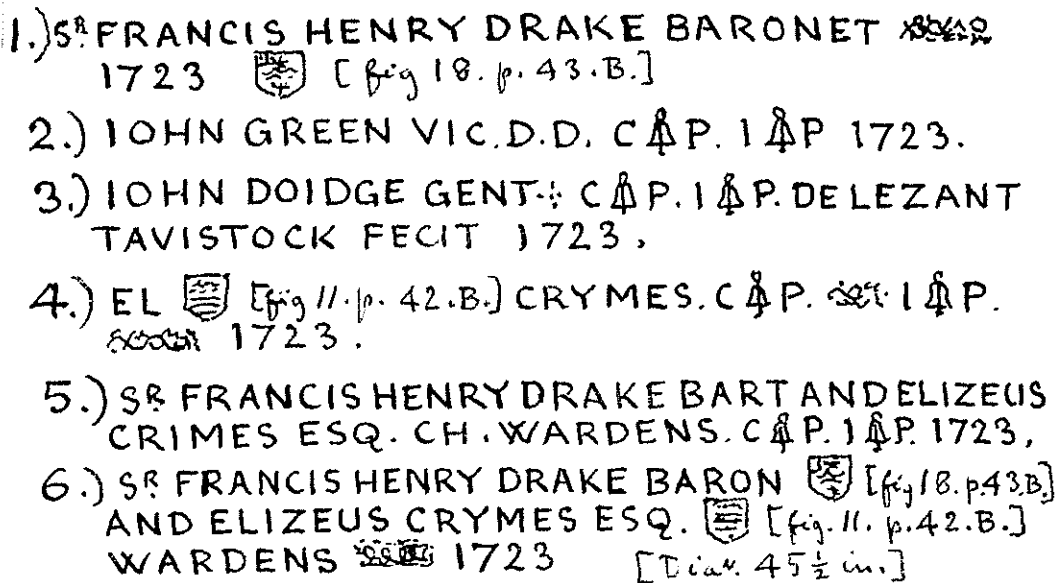 1.) SR FRANCIS HENRY DRAKE BARONET
1723 [fig 18. p. 43. B.]
2.) IOHN GREEN VIC. D.D. C P. I P 1723.
3.) IOHN DOIDGE GENT: C P. I P. DE LEZANT
TAVISTOCK FECIT 1723.
4.) EL [fig 11. p. 42. B.] CRYMES. C P. I P.
1723.
5.) SR FRANCIS HENRY DRAKE BART AND ELIZEUS
CRIMES ESQ. CH. WARDENS. C P. I P. 1723.
6.) SR FRANCIS HENRY DRAKE BARON [fig 18. p. 43. B.]
AND ELIZEUS CRYMES ESQ. [fig. 11. p. 42. B.]
WARDENS 1723 [Diar. 45½ in.]